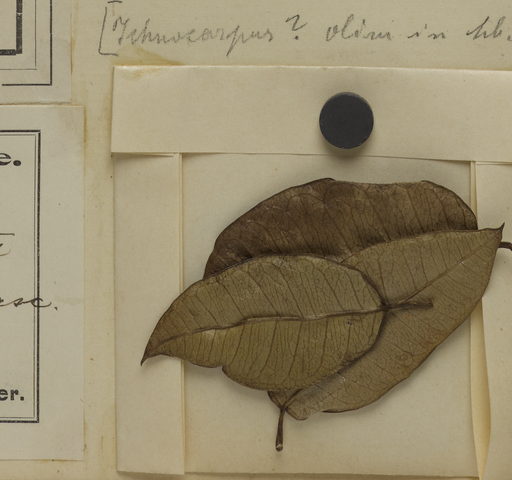 [Ichnocarpus? olim in hb.
e.
sc.
er.